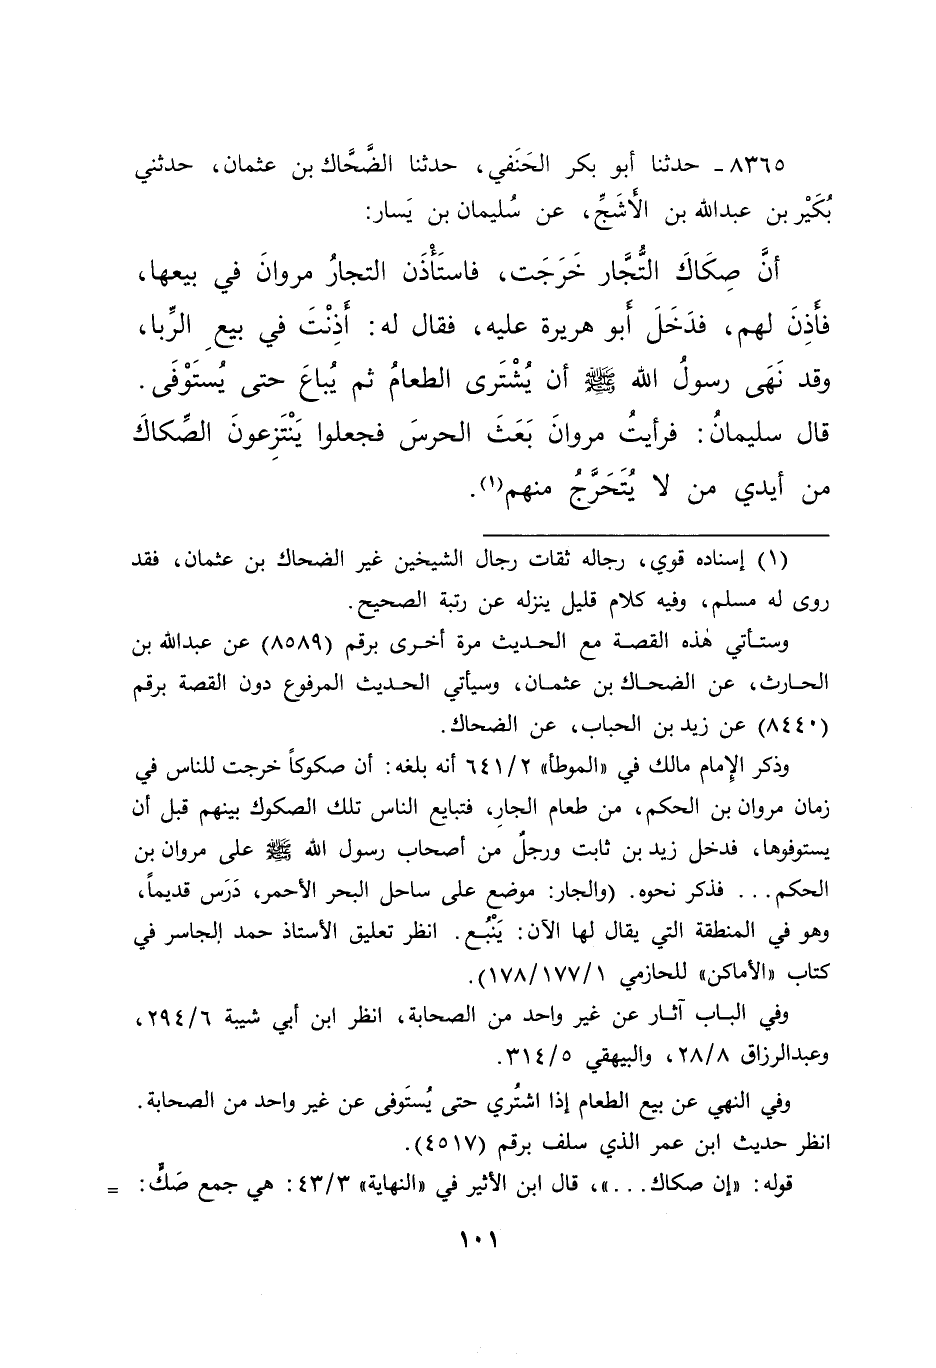 ٨٣٦٥ ـ حدثنا أبو بكر الحَنَفي، حدثنا الضَّحَّاك بن عثمان، حدثني
بُكَيْر بن عبدالله بن الأَشَجِّ، عن سُليمان بن يَسار:
أنَّ صِكَاكَ التُّجَّار خَرَجَت، فاستَأْذَن التجارُ مروانَ في بيعها،
فأَذِنَ لهم، فدَخَلَ أَبو هريرة عليه، فقال له: أَذِنْتَ في بيعِ الرِّبا،
وقد نَهَى رسولُ الله ﷺ أن يُشْتَرى الطعامُ ثم يُباعَ حتى يُستَوْفَى.
قال سليمانُ: فرأيتُ مروانَ بَعَثَ الحرسَ فجعلوا يَنْتَزِعونَ الصِّكاكَ
من أيدي من لا يُتَحَرَّجُ منهم(١).
(١) إسناده قوي، رجاله ثقات رجال الشيخين غير الضحاك بن عثمان، فقد
روى له مسلم، وفيه كلام قليل ينزله عن رتبة الصحيح.
وستأتي هٰذه القصة مع الحديث مرة أخرى برقم (٨٥٨٩) عن عبدالله بن
الحارث، عن الضحاك بن عثمان، وسيأتي الحديث المرفوع دون القصة برقم
(٨٤٤٠) عن زيد بن الحباب، عن الضحاك.
وذكر الإمام مالك في «الموطأ» ٦٤١/٢ أنه بلغه: أن صكوكاً خرجت للناس في
زمان مروان بن الحكم، من طعام الجارِ، فتبايع الناس تلك الصكوك بينهم قبل أن
يستوفوها، فدخل زيد بن ثابت ورجلٌ من أصحاب رسول الله ﷺ على مروان بن
الحكم... فذكر نحوه. (والجار: موضع على ساحل البحر الأحمر، دَرَس قديماً،
وهو في المنطقة التي يقال لها الآن: يَنْبُع. انظر تعليق الأستاذ حمد الجاسر في
كتاب «الأماكن» للحازمي ١٧٨/١٧٧/١).
وفي الباب آثار عن غير واحد من الصحابة، انظر ابن أبي شيبة ٢٩٤/٦،
وعبدالرزاق ٢٨/٨، والبيهقي ٣١٤/٥.
وفي النهي عن بيع الطعام إذا اشتُري حتى يُستَوفى عن غير واحد من الصحابة.
انظر حديث ابن عمر الذي سلف برقم (٤٥١٧).
قوله: «إن صكاك...»، قال ابن الأثير في «النهاية» ٤٣/٣: هي جمع صَكٍّ: =
١٠١